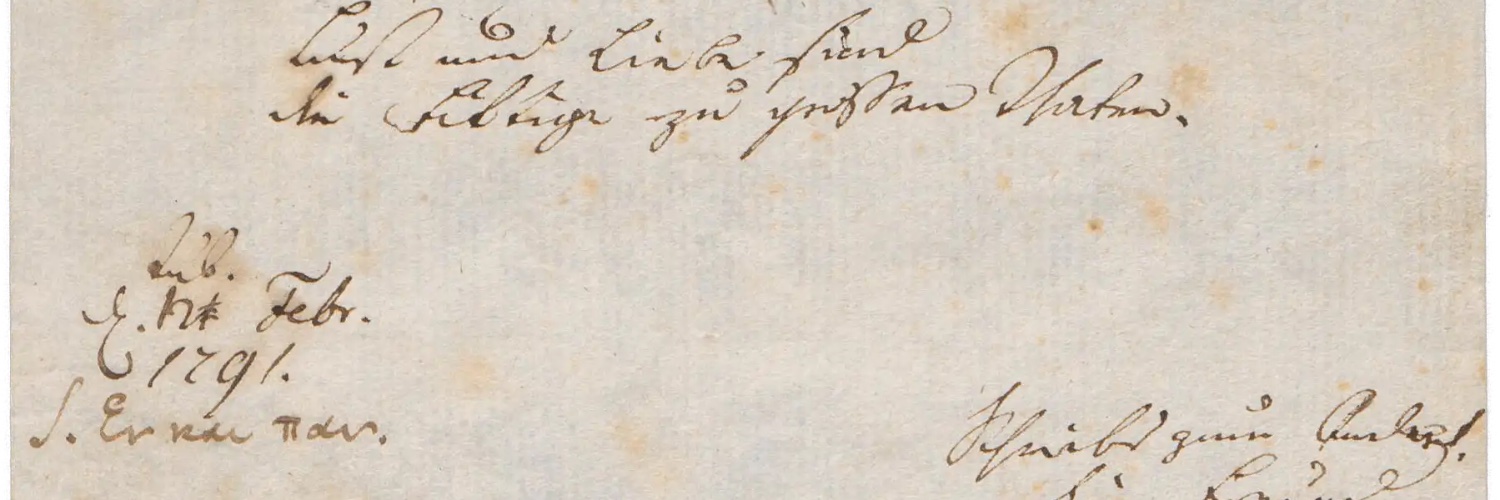 Lust und Liebe sind
die Fittige zu großen Thaten.
Tüb.
d. 12t Febr.
1791.
S. Εν και παν.
Schriebs zum Andenk.